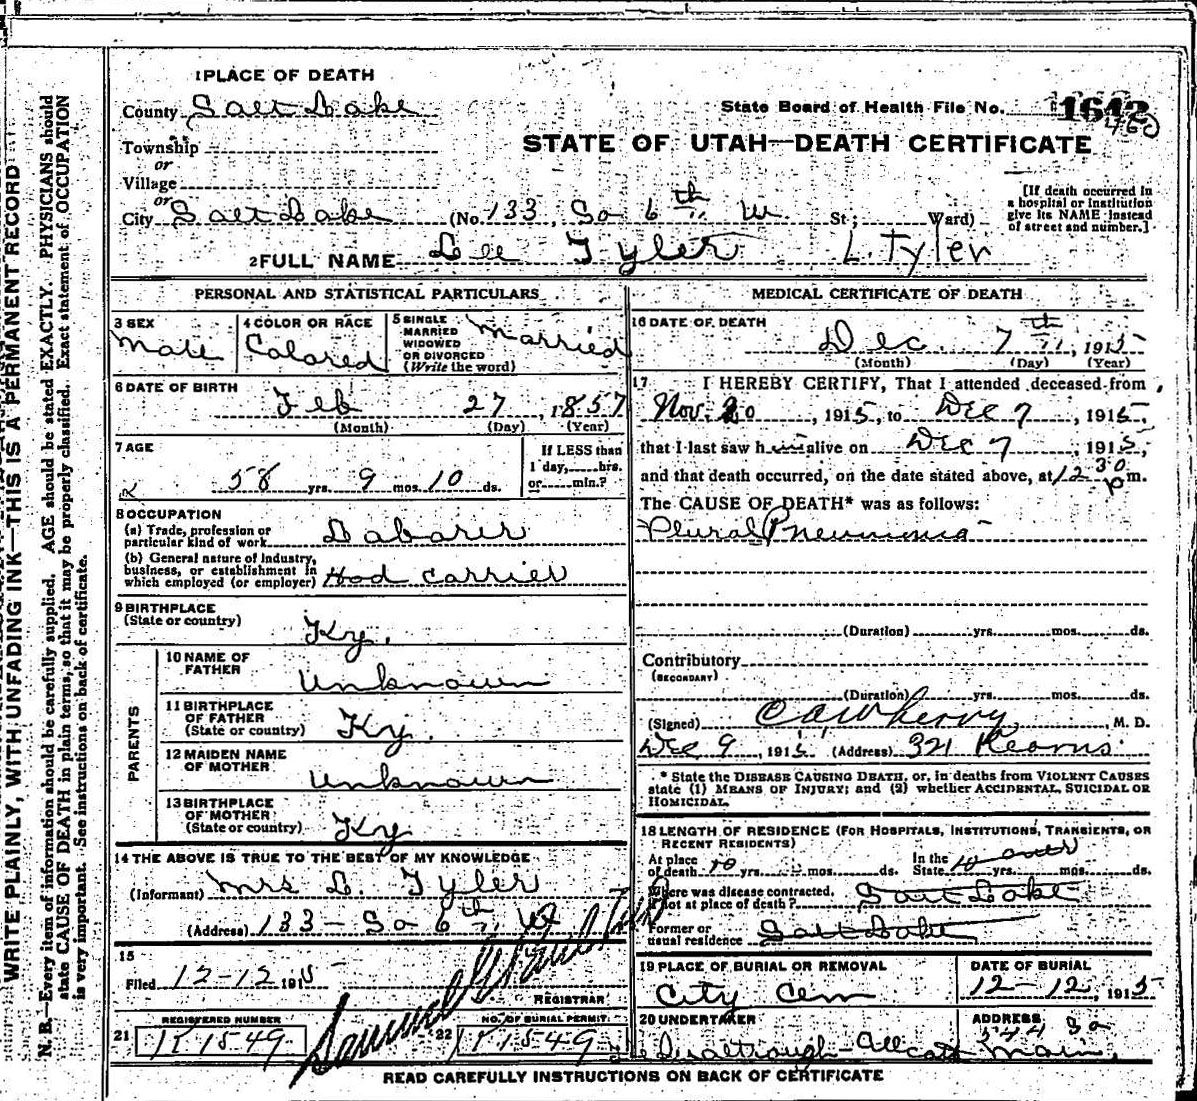 WRITE PLAINLY, WITH UNFADING INK—THIS IS A PERMANENT RECORD
N. B.—Every item of information should be carefully supplied. AGE should be stated EXACTLY. PHYSICIANS should
state CAUSE OF DEATH in plain terms, so that it may be properly classified. Exact statement of OCCUPATION
is very important. See instructions on back of certificate.
1 PLACE OF DEATH
County Salt Lake
State Board of Health File No. 1642
460
Township
STATE OF UTAH—DEATH CERTIFICATE
or
Village
or
City Salt Lake (No. 133, So 6th W. St; Ward)
[If death occurred in
a hospital or institution
give its NAME instead
of street and number.]
2 FULL NAME Lee Tyler L. Tyler
PERSONAL AND STATISTICAL PARTICULARS
3 SEX
Male
4 COLOR OR RACE
Colored
5 SINGLE
MARRIED
WIDOWED
OR DIVORCED
(Write the word)
Married
6 DATE OF BIRTH
Feb 27, 1857
(Month) (Day) (Year)
7 AGE
58 yrs. 9 mos. 10 ds.
If LESS than
1 day, hrs.
or min.?
8 OCCUPATION
(a) Trade, profession or
particular kind of work Laborer
(b) General nature of industry,
business, or establishment in
which employed (or employer) Hod carrier
9 BIRTHPLACE
(State or country)
Ky.
PARENTS
10 NAME OF
FATHER
Unknown
11 BIRTHPLACE
OF FATHER
(State or country) Ky.
12 MAIDEN NAME
OF MOTHER
Unknown
13 BIRTHPLACE
OF MOTHER
(State or country) Ky
14 THE ABOVE IS TRUE TO THE BEST OF MY KNOWLEDGE
(Informant) Mrs L. Tyler
(Address) 133 - So 6th W
15
Filed 12-12 1915
REGISTRAR
21 REGISTERED NUMBER
R 1549
22 NO. OF BURIAL PERMIT
R 1549
MEDICAL CERTIFICATE OF DEATH
16 DATE OF DEATH
Dec. 7th, 1915
(Month) (Day) (Year)
17 I HEREBY CERTIFY, That I attended deceased from
Nov. 20, 1915, to Dec 7, 1915,
that I last saw him alive on Dec 7, 1915,
and that death occurred, on the date stated above, at 12 30 p m.
The CAUSE OF DEATH* was as follows:
Plural Pneumonia
(Duration) yrs. mos. ds.
Contributory
(SECONDARY)
(Duration) yrs. mos. ds.
(Signed) M. D.
Dec 9, 1915 (Address) 321 Kearns
* State the DISEASE CAUSING DEATH, or, in deaths from VIOLENT CAUSES
state (1) MEANS OF INJURY; and (2) whether ACCIDENTAL, SUICIDAL OR
HOMICIDAL.
18 LENGTH OF RESIDENCE (FOR HOSPITALS, INSTITUTIONS, TRANSIENTS, OR
RECENT RESIDENTS)
At place
of death 10 yrs. mos. ds.
In the
State 10 over yrs. mos. ds.
Where was disease contracted,
if not at place of death? Salt Lake
Former or
usual residence Salt Lake
19 PLACE OF BURIAL OR REMOVAL
City Cem
DATE OF BURIAL
12-12, 1915
20 UNDERTAKER
ADDRESS
544 So
Main
READ CAREFULLY INSTRUCTIONS ON BACK OF CERTIFICATE